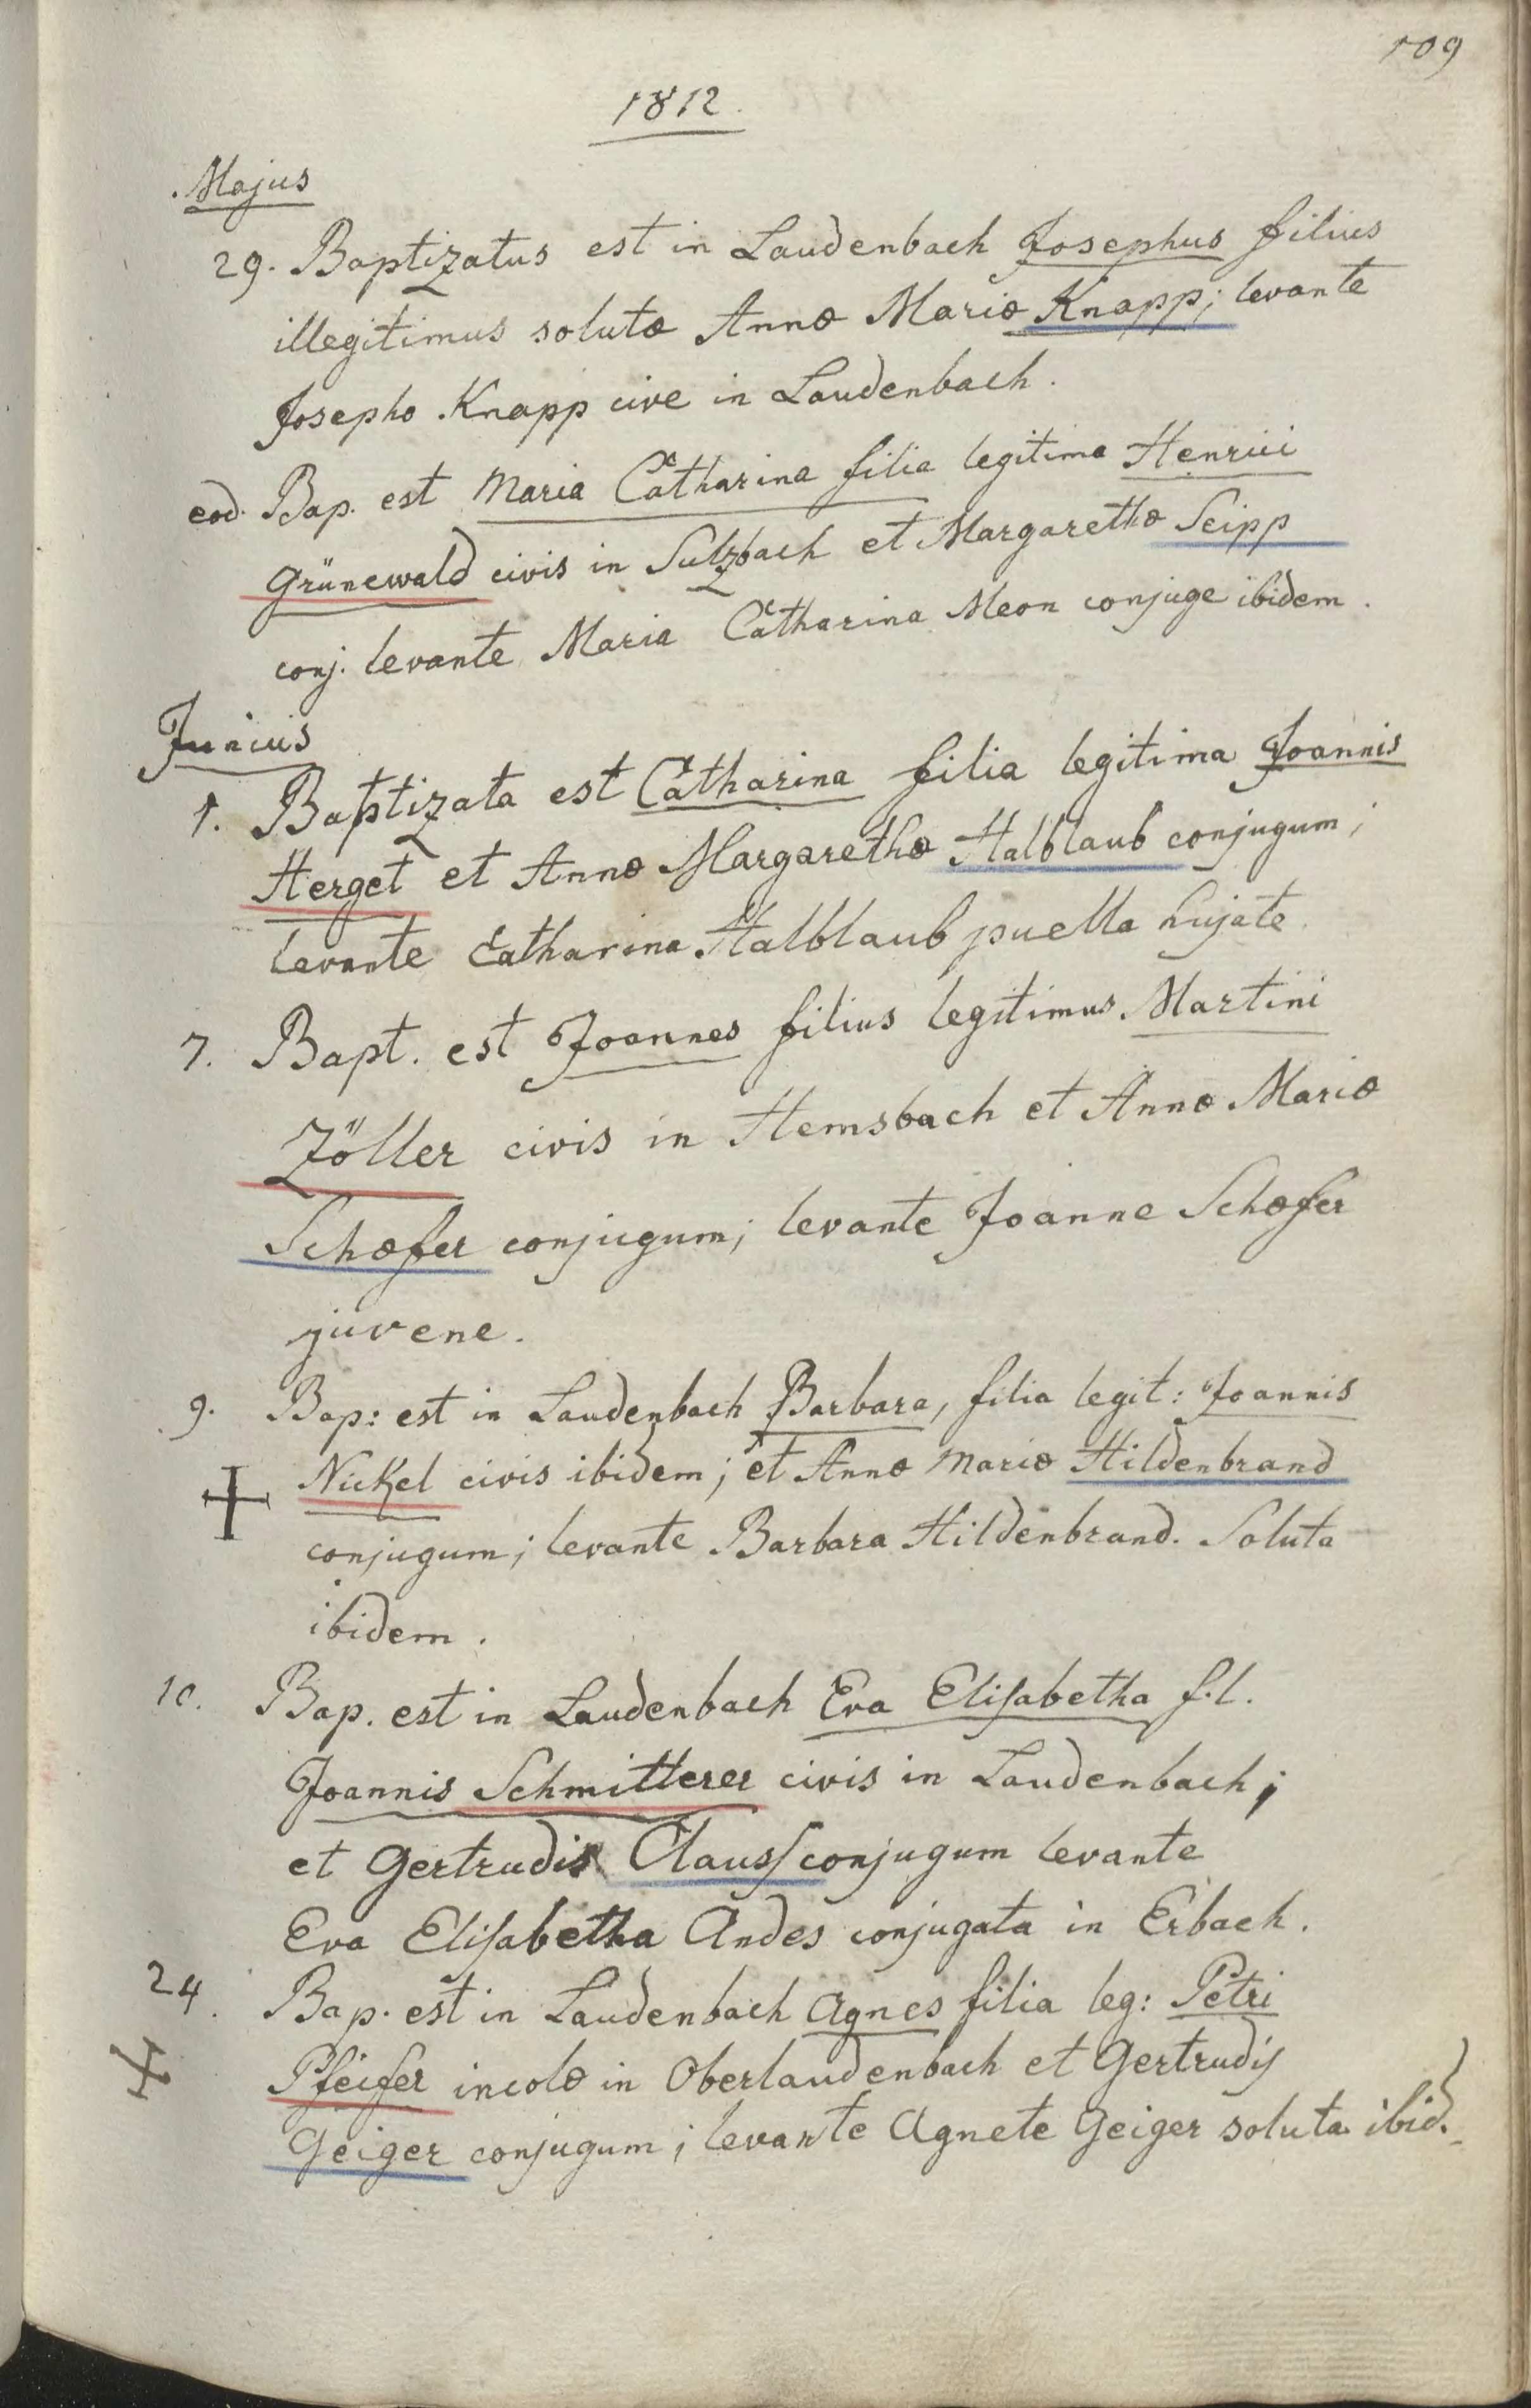 109
1812.
Majus
29. Baptizatus est in Laudenbach Josephus filius
illegitimus solutæ Annæ Mariæ Knapp; levante
Josepho Knapp cive in Laudenbach.
eod. Bap. est Maria Catharina filia legitima Henrici
Grünewald civis in Sulzbach et Margarethæ Seipp
conj. levante Maria Catharina Meon conjuge ibidem.
Junius
1. Baptizata est Catharina filia legitima Joannis
Herget et Annæ Margarethæ Halblaub conjugum;
levante Catharina Halblaub puella hujate
7. Bapt. est Joannes filius legitimus Martini
Zöller civis in Hemsbach et Annæ Mariæ
Schæfer conjugum; levante Joanne Schæfer
juvene.
9. Bap: est in Laudenbach Barbara, filia legit: Joannis
Nickel civis ibidem; et Annæ Mariæ Hildenbrand
conjugum; levante Barbara Hildenbrand. Soluta
ibidem.
10. Bap. est in Laudenbach Eva Elisabetha f. l.
Joannis Schmitterer civis in Laudenbach;
et Gertrudis Clauss conjugum levante
Eva Elisabetha Andes conjugata in Erbach.
24. Bap. est in Laudenbach Agnes filia leg: Petri
Pfeifer incolæ in Oberlaudenbach et Gertrudis
Geiger conjugum; levante Agnete Geiger soluta ibid.